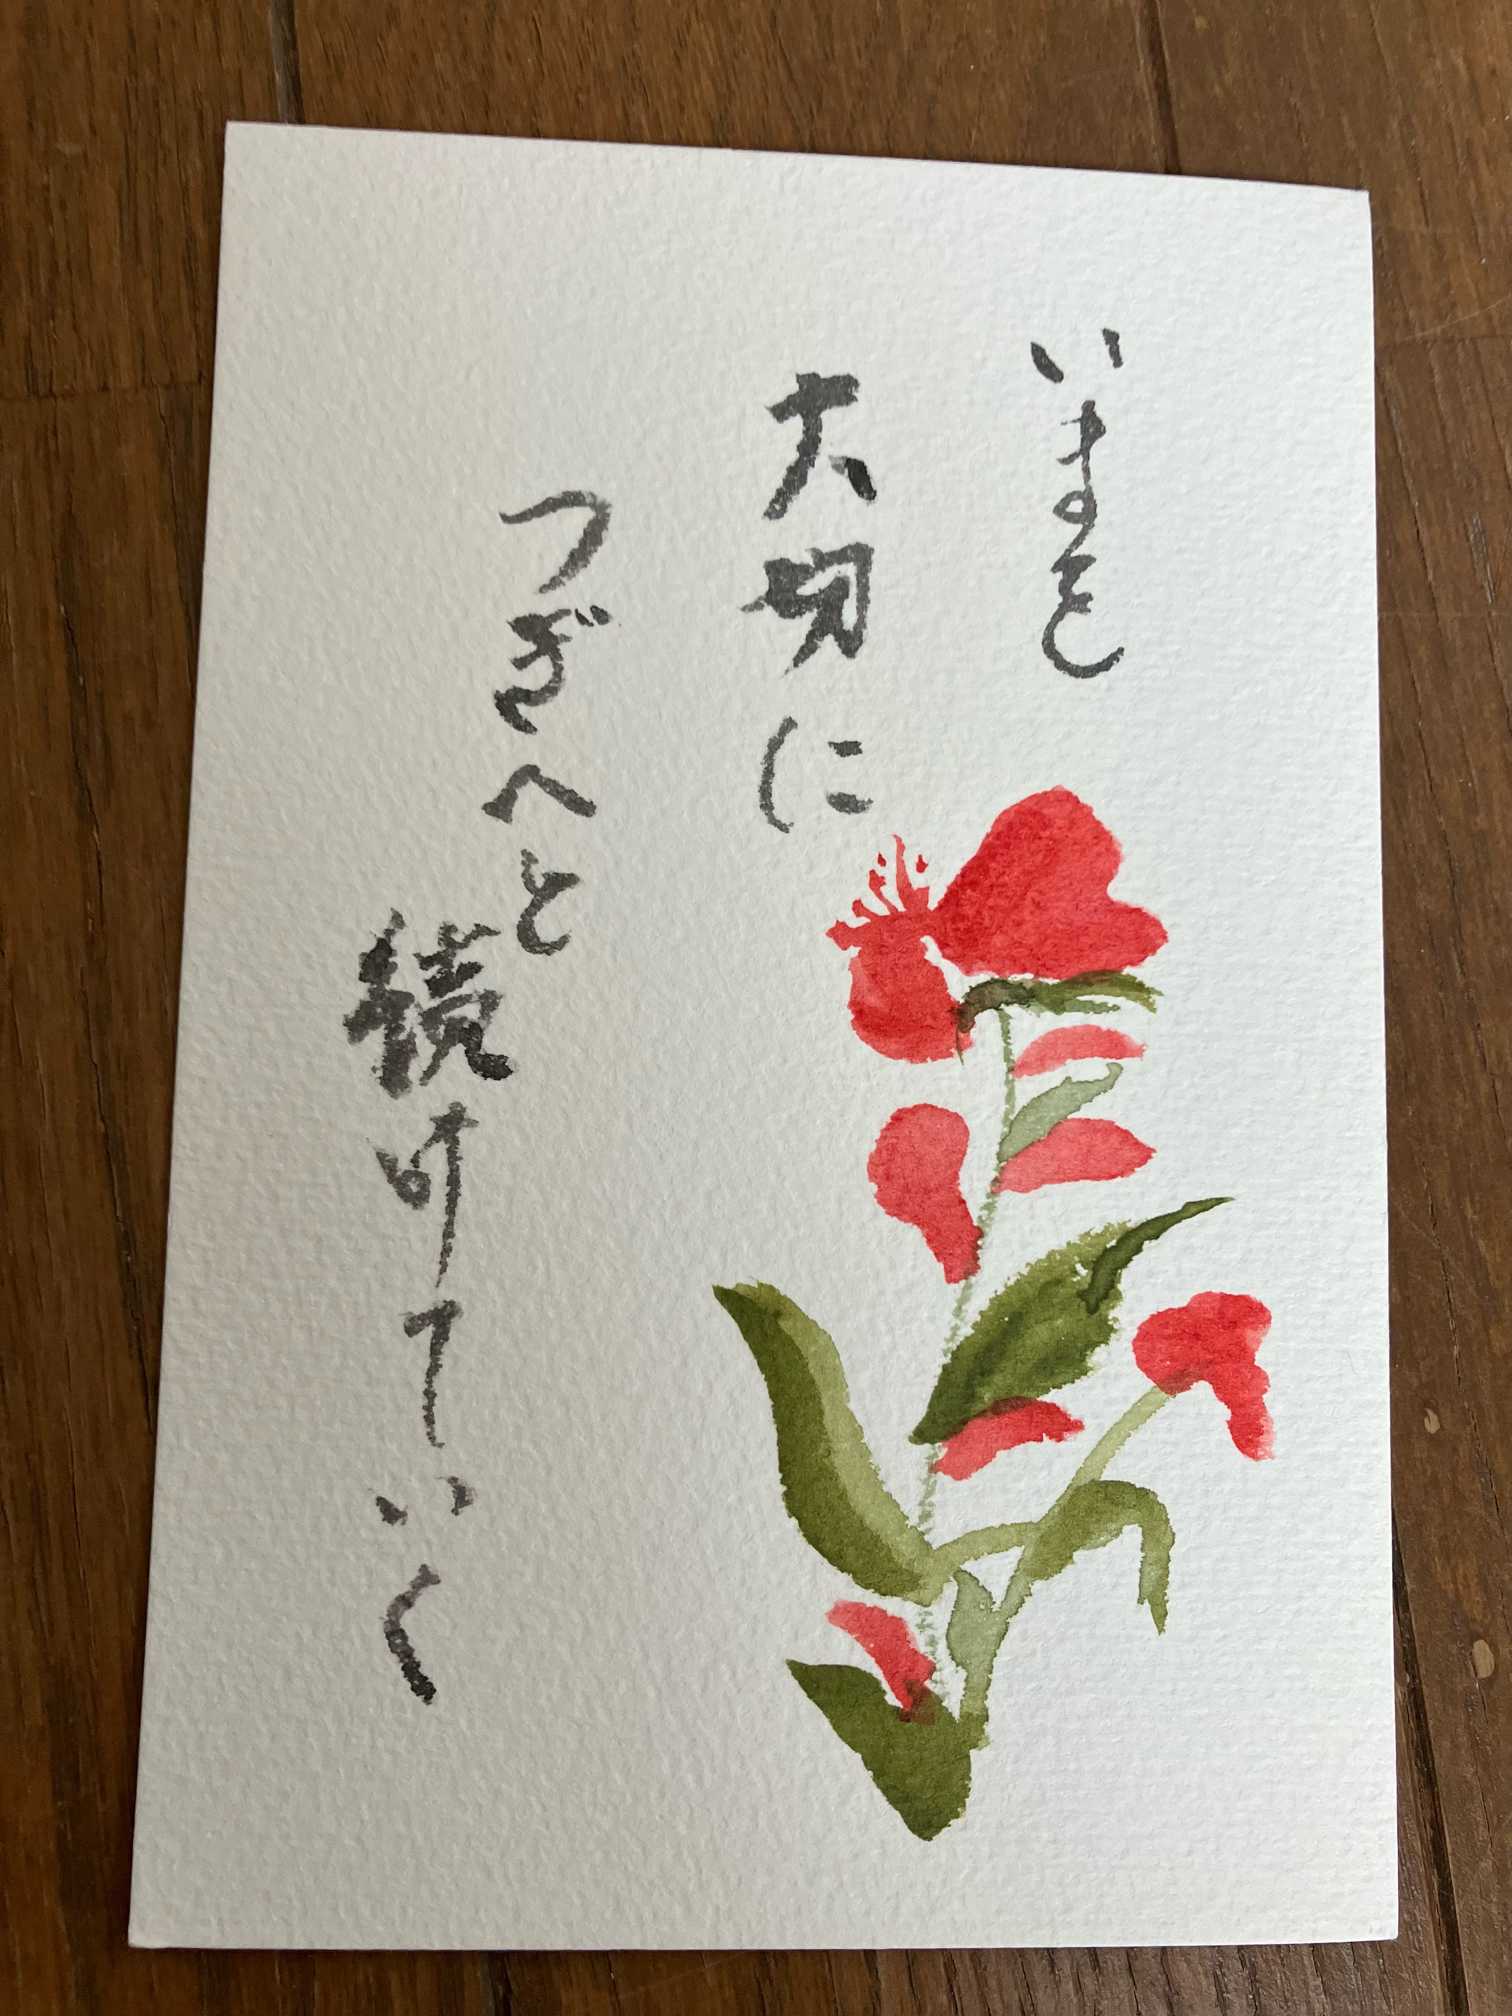 いまを
大切に
つぎへと
続けていく